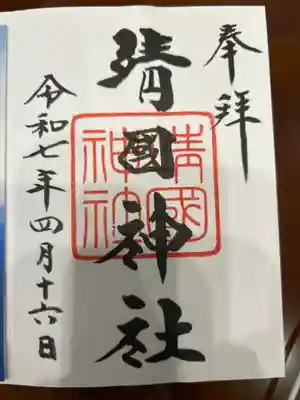 奉拝
靖國神社
靖國神社
令和七年四月十六日